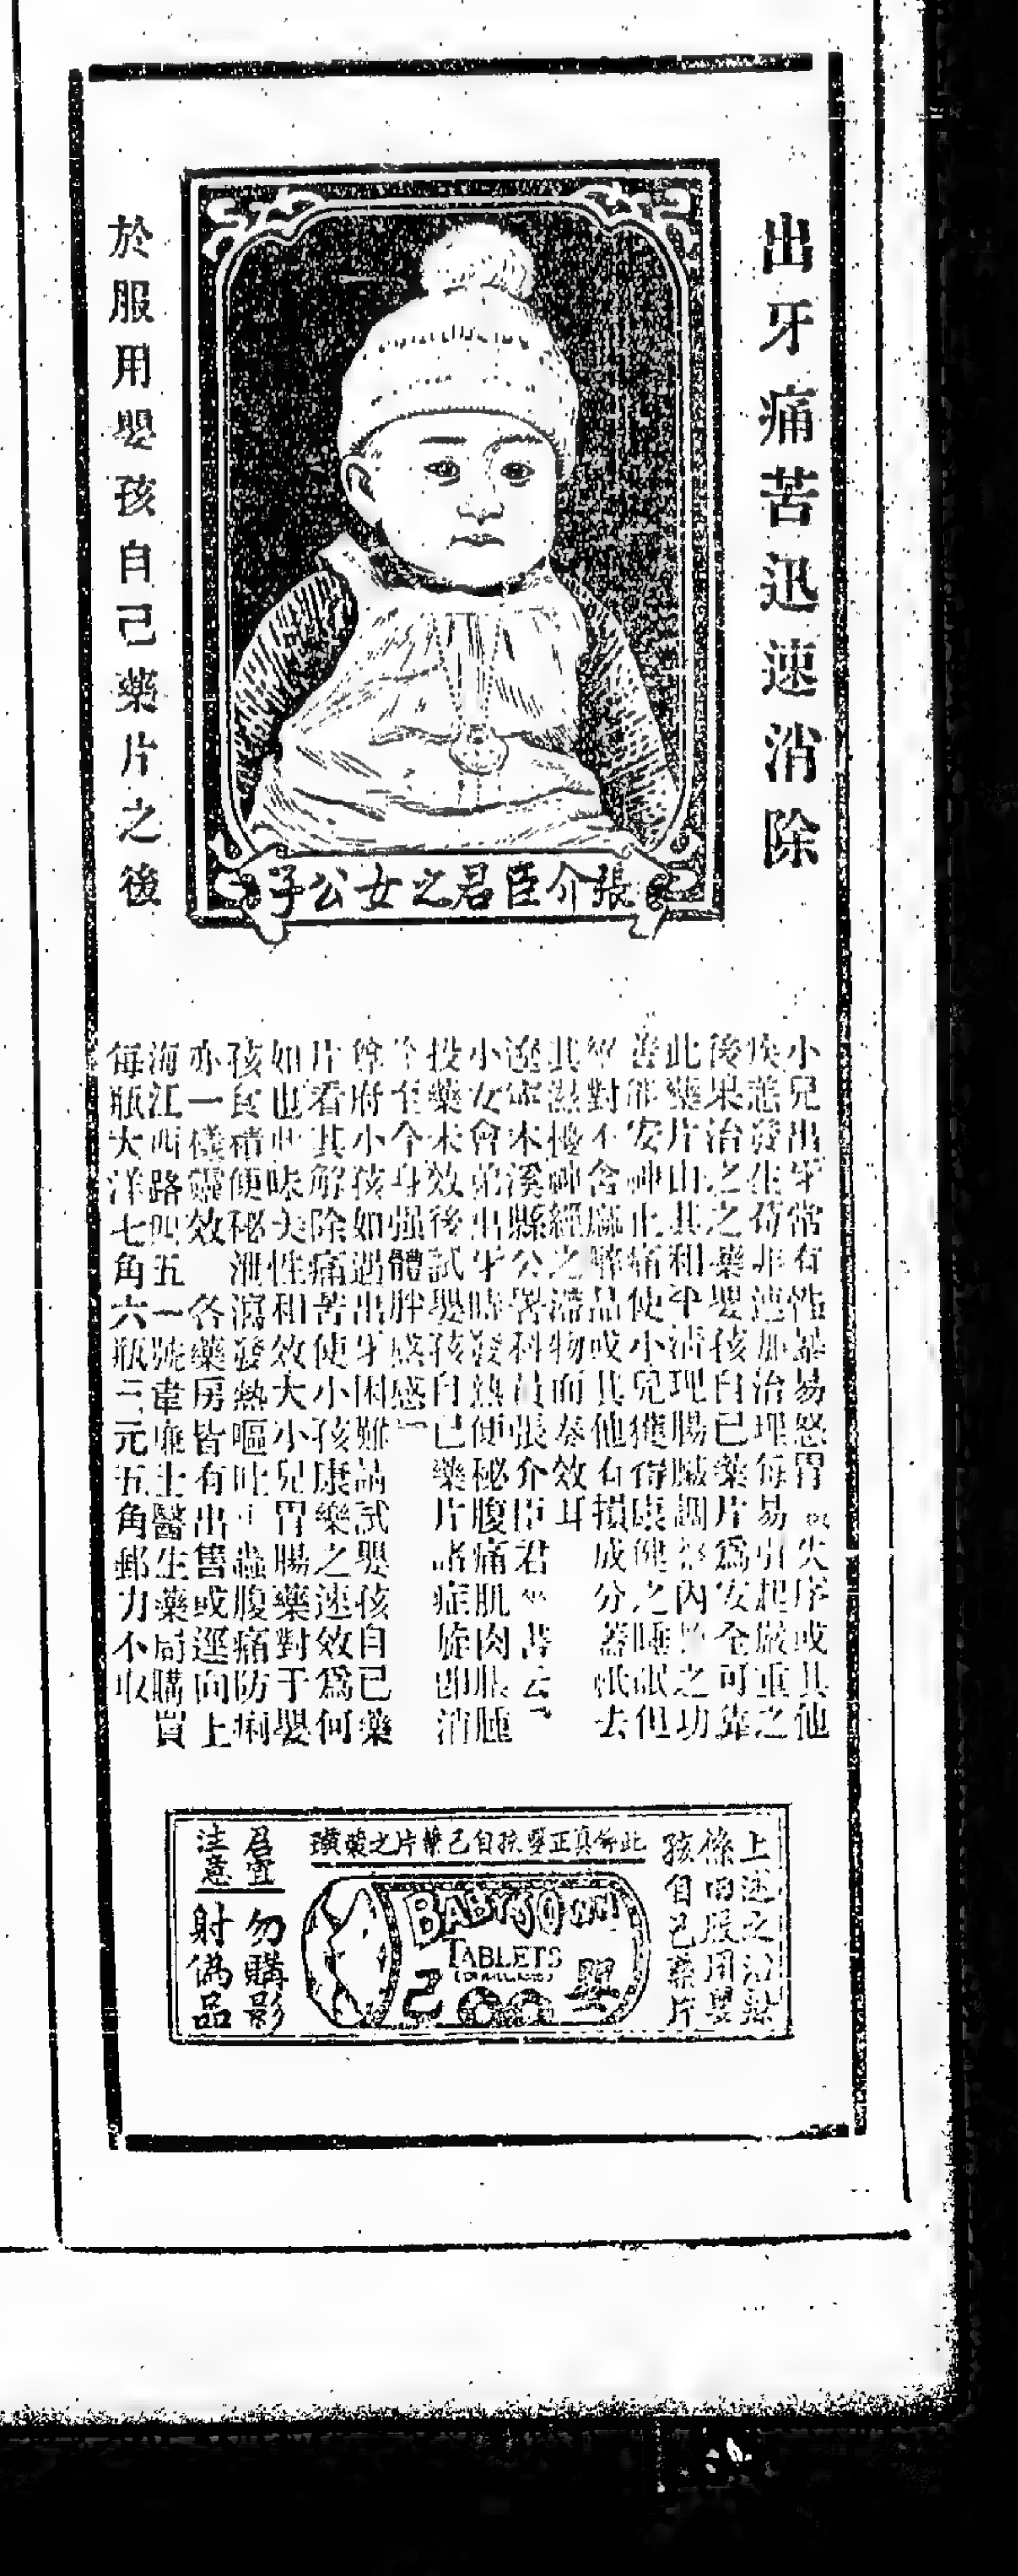 出牙痛苦迅速消除
於服用嬰孩自己藥片之後
張介臣君之女公子
小兒出牙常有性暴易怒胃 失序或其他
疾恙發生苟非速加治理每易引起嚴重之
後果治之之藥嬰孩自已藥片爲安全可靠
此藥片由其和平清理腸臟調 內 之功
善能安神止痛使小兒獲得康健之睡眠但
絕對不含麻醉品或其他有損成分蓋祇去
其滋擾神經之滯物而奏效耳
遼寧本溪縣公署科員張介臣君 書云
小女會弟出牙時發熱便秘腹痛肌肉脹腫
投藥未效後試嬰孩自已藥片諸症旋即消
今至今身强體胖感感
尊府小孩如遇出牙困難請試嬰孩自已藥
片看其解除痛苦使小孩康樂之速效爲何
如也此味美性和效大小兒胃腸藥對于嬰
孩食積便秘泄瀉發熱嘔吐 蟲腹痛防痢
亦一樣靈效 各藥房皆有出售或逕向上
海江西路四五一號韋廉士醫生藥局購買
每瓶大洋七角六瓶三元五角郵力不收
上述之治
係由服用嬰
孩自己藥片
此係真正嬰孩自己藥片之裝璜
BABY'S OWN
TABLETS
嬰
己
君宜
注意
勿購影
射僞品